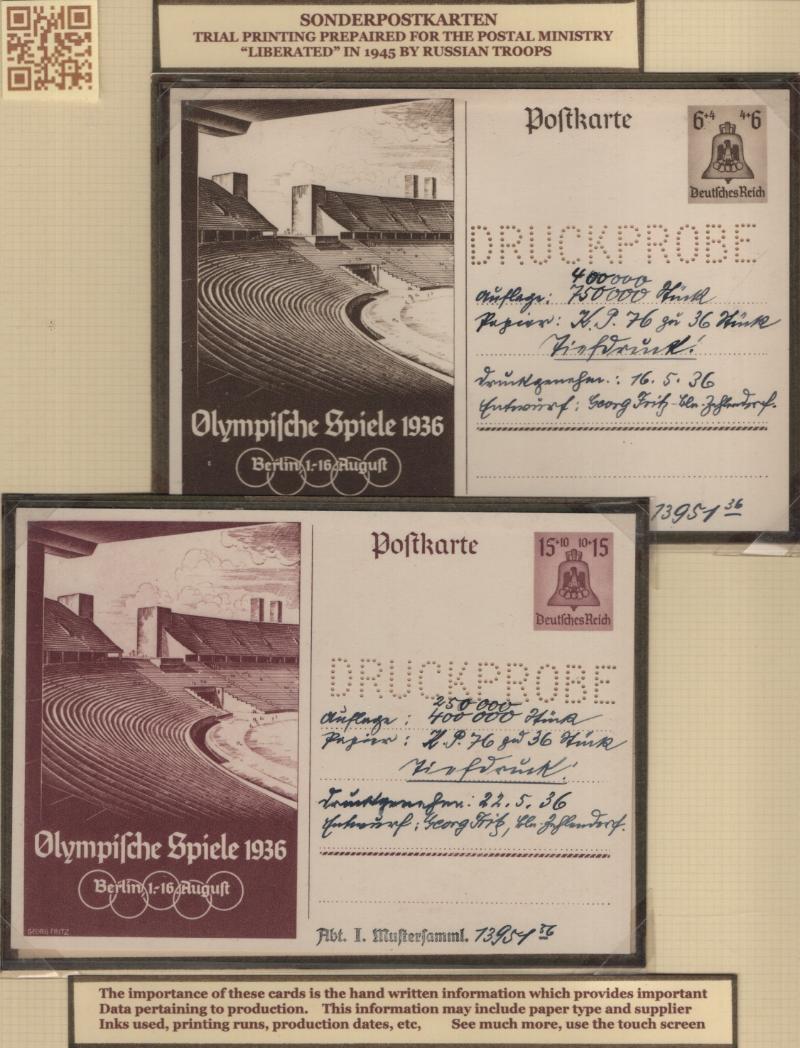 SONDERPOSTKARTEN
TRIAL PRINTING PREPAIRED FOR THE POSTAL MINISTRY
“LIBERATED” IN 1945 BY RUSSIAN TROOPS
Postkarte
6+4 4+6
Deutsches Reich
DRUCKPROBE
400000
Auflage: 750000 Stück
Papier: K. P. 76 zu 36 Stück
Tiefdruck!
Druckgenehm.: 16. 5. 36
Entwurf: Georg Fritz-Bln. Zehlendorf.
Olympische Spiele 1936
Berlin 1.-16. August
13951 36
Postkarte
15+10 10+15
Deutsches Reich
DRUCKPROBE
250 000
Auflage: 400 000 Stück
Papier: K. P. 76 zu 36 Stück
Tiefdruck!
Druckgenehm: 22. 5. 36
Entwurf: Georg Fritz, Bln. Zehlendorf.
Olympische Spiele 1936
Berlin 1.-16. August
GEORG FRITZ
Abt. I. Mustersamml. 13951 36
The importance of these cards is the hand written information which provides important
Data pertaining to production. This information may include paper type and supplier
Inks used, printing runs, production dates, etc, See much more, use the touch screen